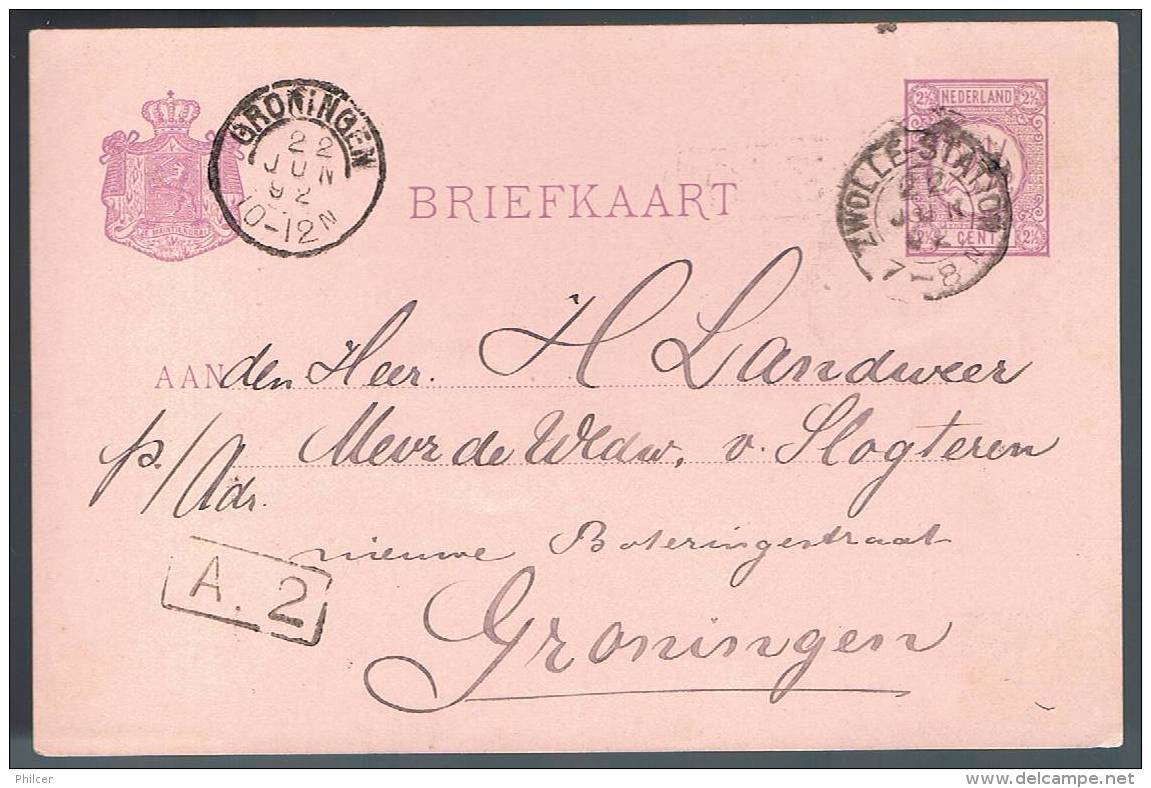 GRONINGEN
22
JUN
92
10-12N
BRIEFKAART
2½ NEDERLAND 2½
2½ CENT 2½
ZWOLLE-STATION
22
JUN
92
7-8N
AAN den Heer. H Landweer
p./Adr. Mevr de Wedw. v. Slogteren
nieuwe Boteringestraat
A. 2
Groningen
Philcer
http://www.delcampe.net